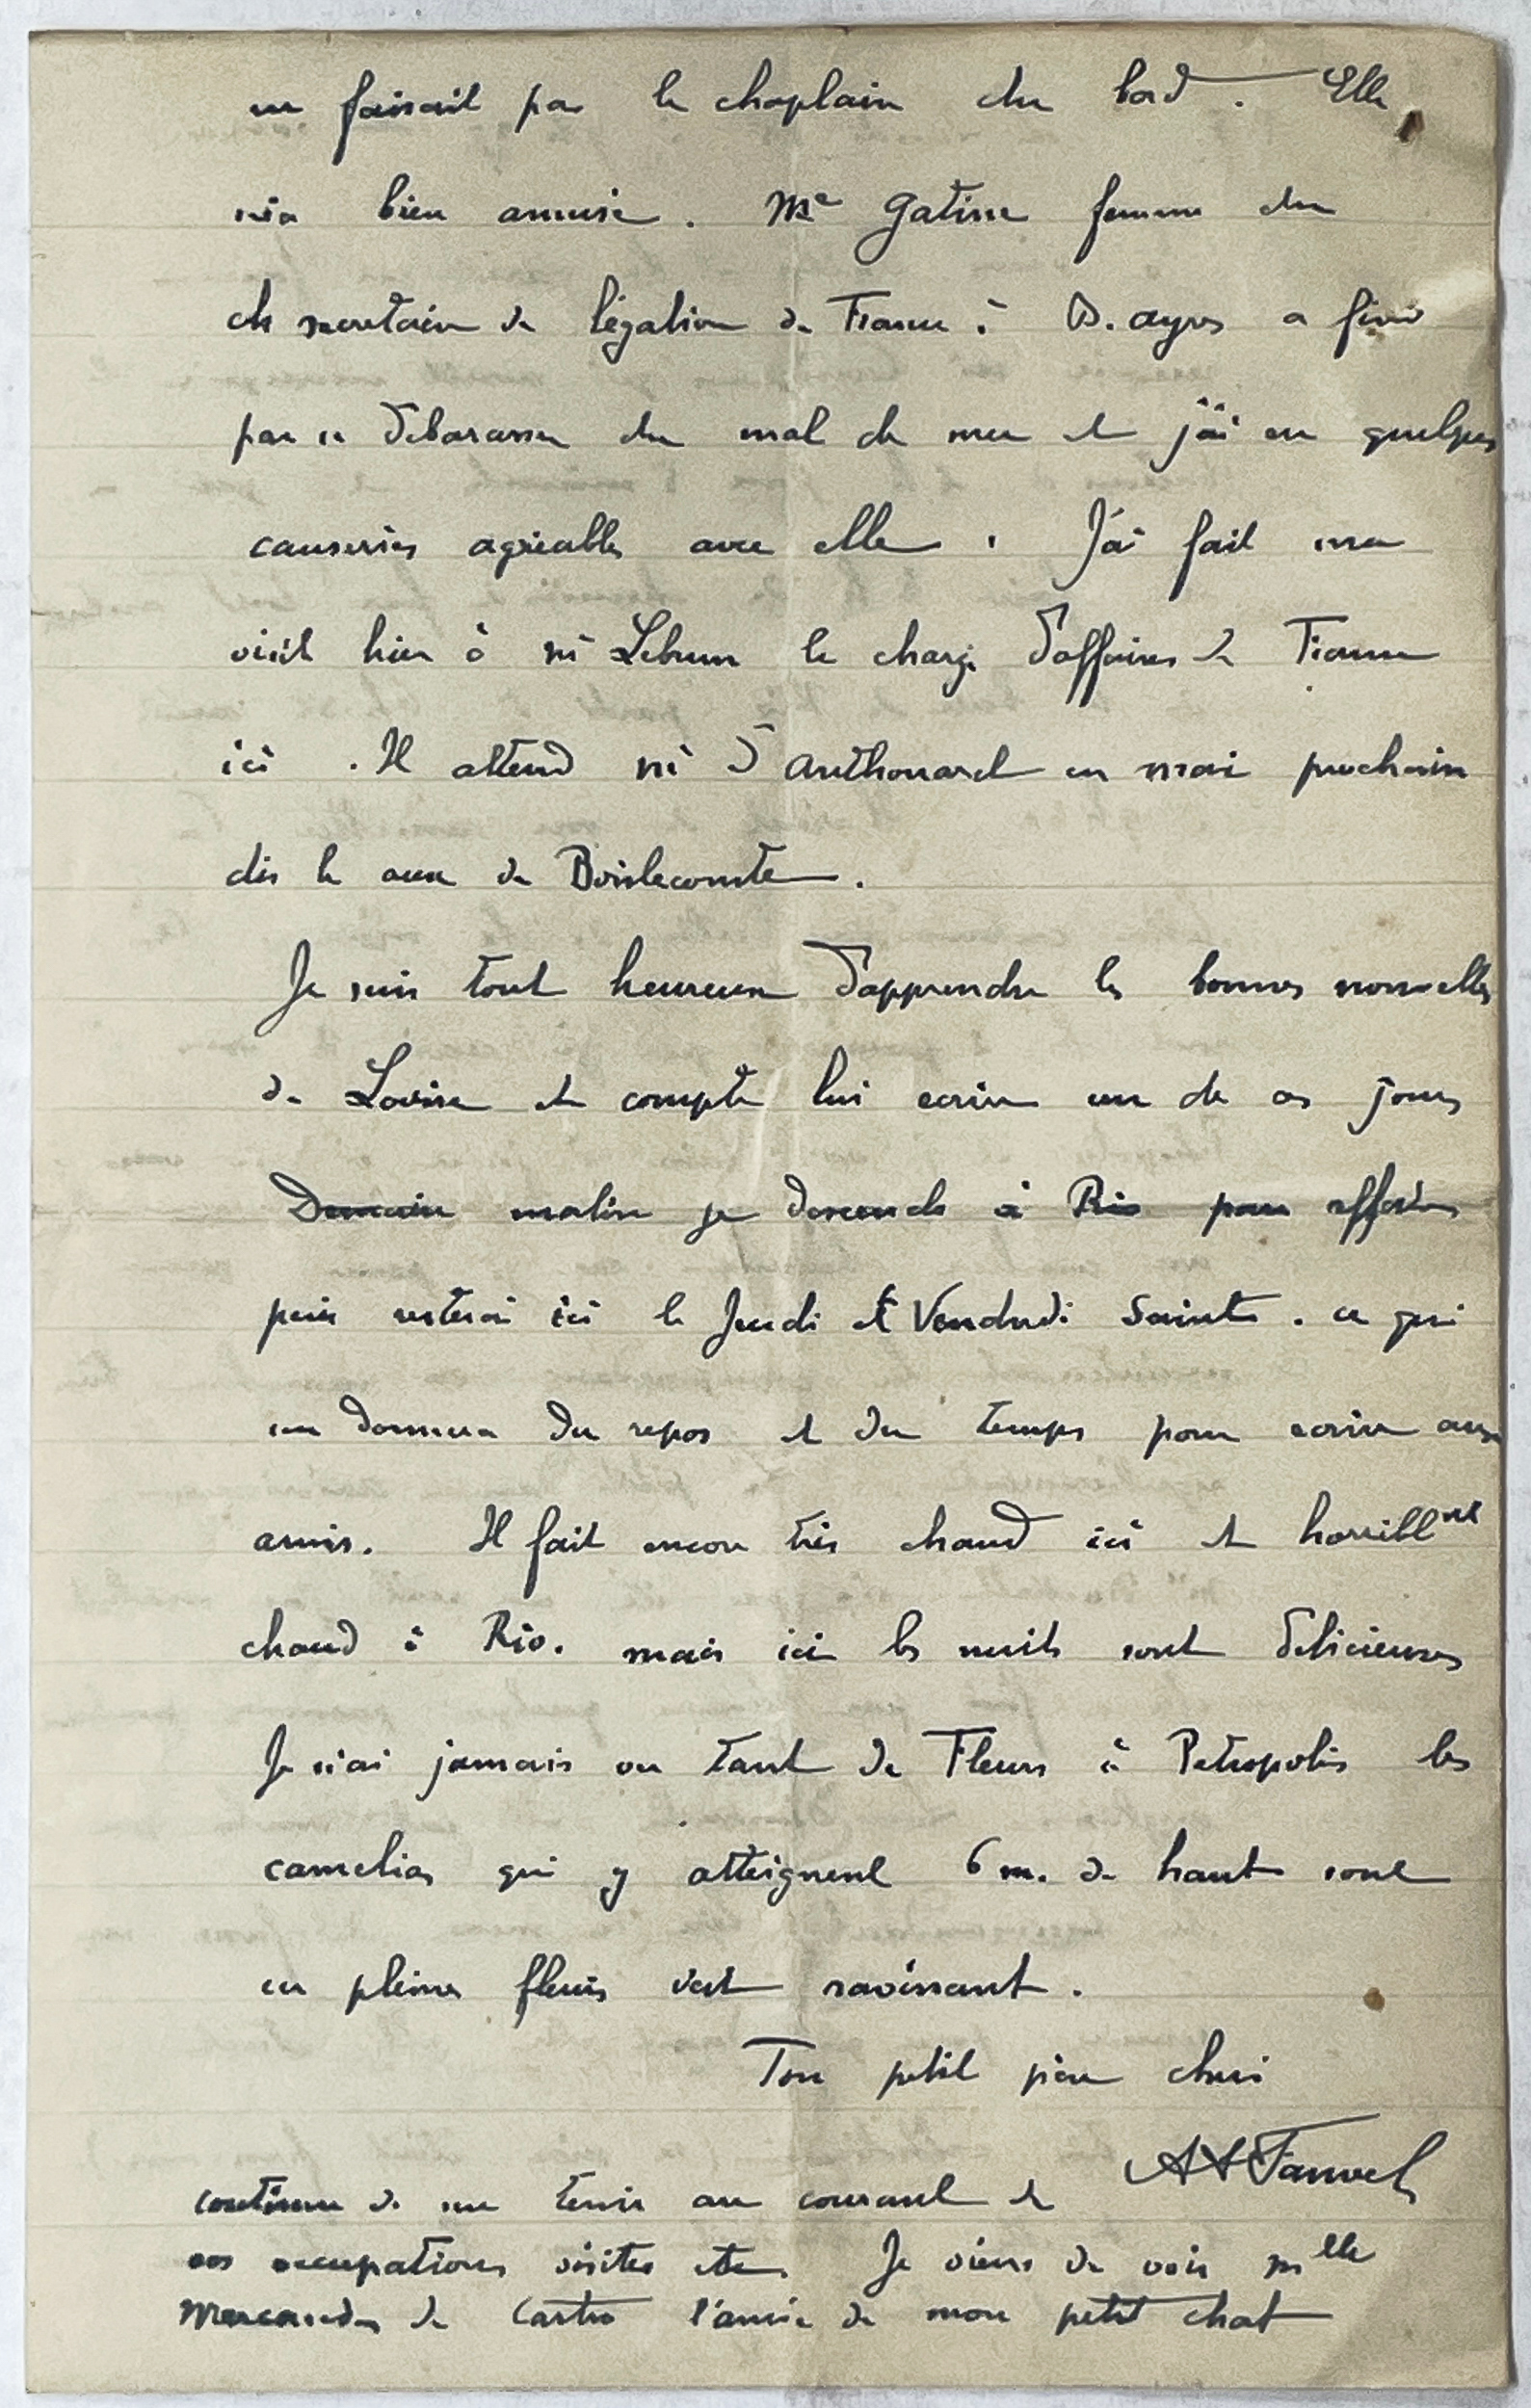 me faisait par le chaplain du bord. Elle
m'a bien amusé. Me Gatine femme du
du secretaire de légation de France à B. Ayres a fini
par se debarasser du mal de mer et j'ai eu quelques
causeries agréables avec elle. J'ai fait ma
visite hier à Mr Lebrun le chargé d'affaires de France
ici. Il attend Mr d'Anthouard en mai prochain
dis le aux de Boislecomte.
Je suis tout heureux d'apprendre les bonnes nouvelles
de Louise et compte lui ecrire un de ces jours
Demain matin je descends à Rio pour affaires
puis resterai ici le Jeudi et Vendredi Saints. ce qui
me donnera du repos et du temps pour ecrire aux
amis. Il fait encore très chaud ici et horriblnt
chaud à Rio. mais ici les nuits sont delicieuses
Je n'ai jamais vu tant de Fleurs à Petropolis les
camelias qui y atteignent 6 m. de haut sont
en pleines fleurs c'est ravissant.
Ton petit père cheri
continue de me tenir au courant de
vos occupations visites etc. Je viens de voir Mlle
Mercedes de Castro l'amie de mon petit chat